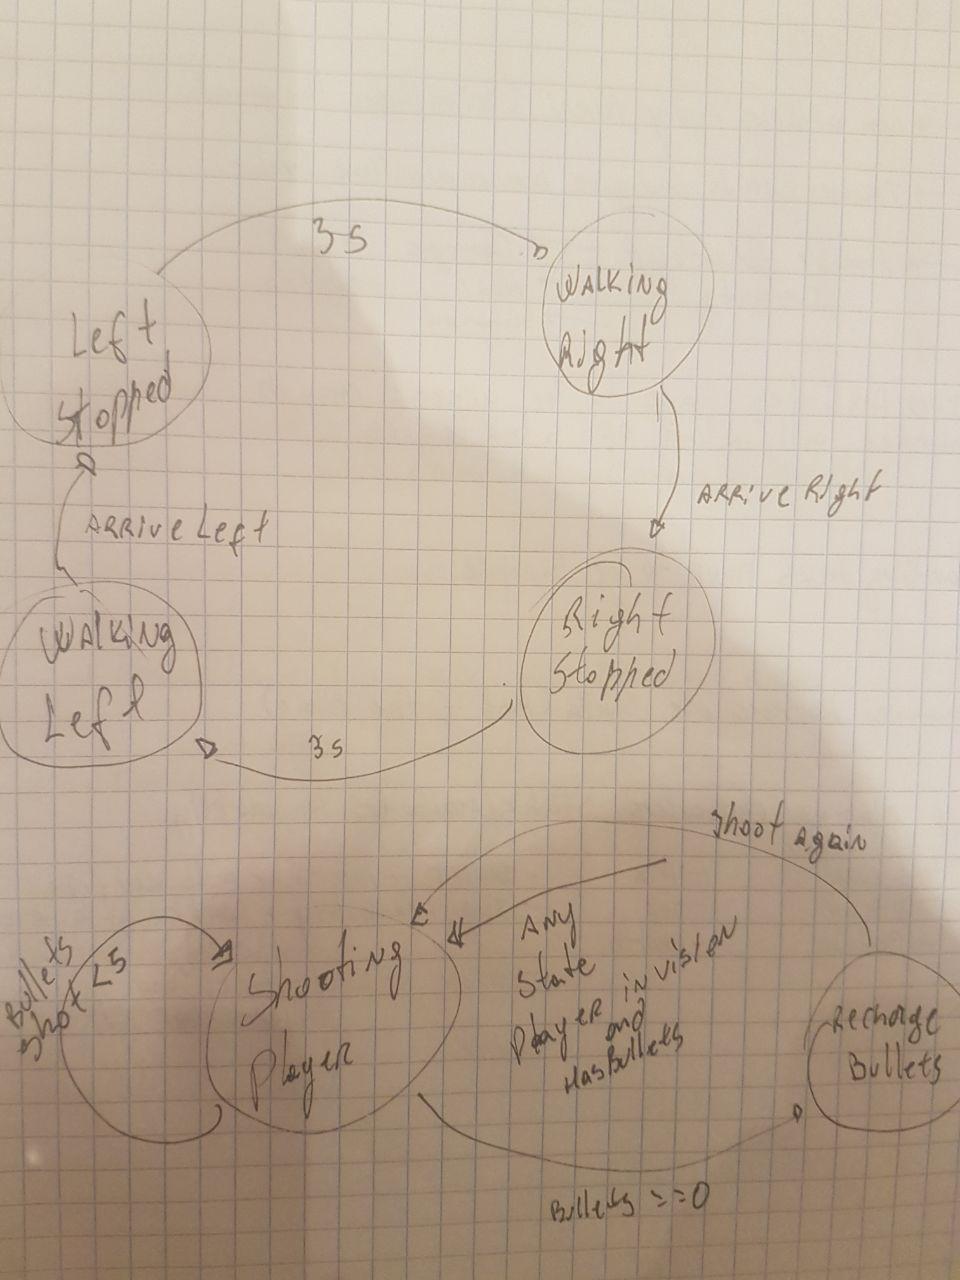 3s
Left
Stopped
Walking
Right
Arrive Right
Arrive Left
Walking
Left
Right
Stopped
3s
Shoot again
Bullets
Shot <5
Shooting
Player
Any
State
Player in vision
and
HasBullets
Recharge
Bullets
Bullets ==0